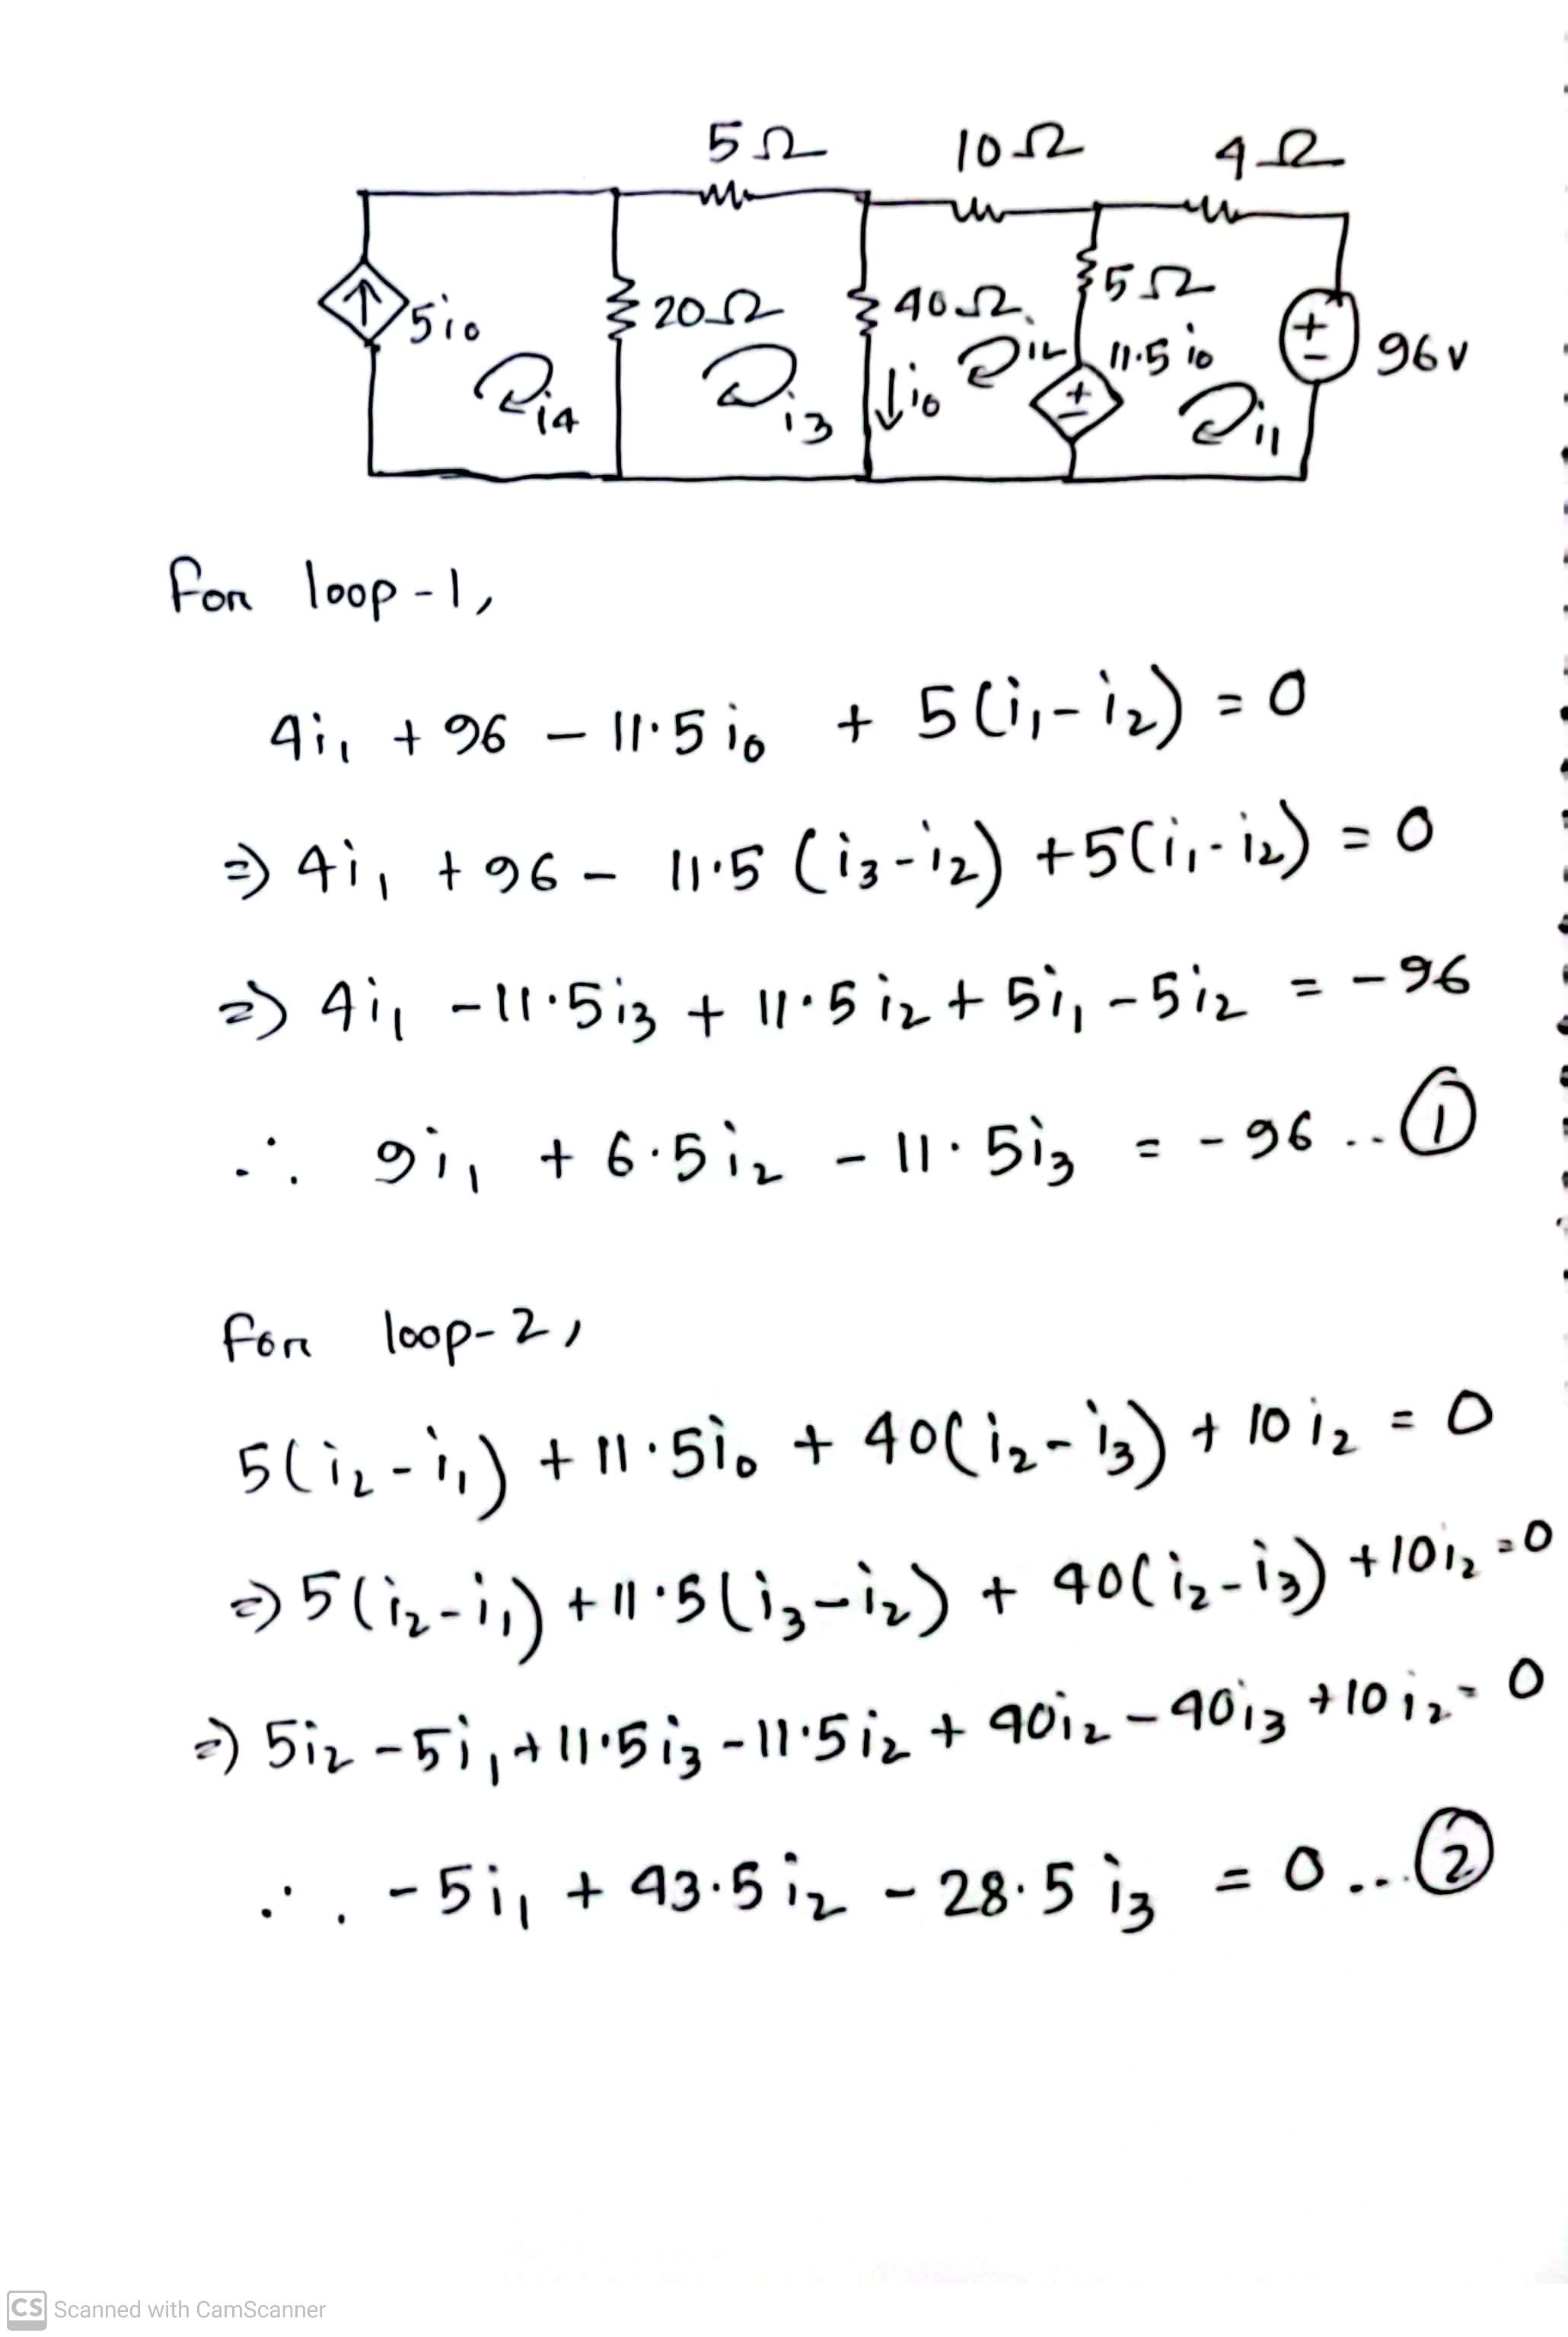 5Ω 10Ω 4Ω
5i0 20Ω 40Ω 5Ω 11.5 i0 + - 96v
i4 i3 i0 i2 + - i1
For loop-1,
4i1 + 96 - 11.5 i0 + 5(i1 - i2) = 0
⇒ 4i1 + 96 - 11.5 (i3 - i2) + 5(i1 - i2) = 0
⇒ 4i1 - 11.5i3 + 11.5 i2 + 5i1 - 5i2 = -96
∴ 9i1 + 6.5i2 - 11.5i3 = -96 .. ①
For loop-2,
5(i2 - i1) + 11.5i0 + 40(i2 - i3) + 10 i2 = 0
⇒ 5(i2 - i1) + 11.5(i3 - i2) + 40(i2 - i3) + 10i2 = 0
⇒ 5i2 - 5i1 + 11.5i3 - 11.5i2 + 40i2 - 40i3 + 10i2 = 0
∴ -5i1 + 43.5 i2 - 28.5 i3 = 0 ... ②
CS Scanned with CamScanner